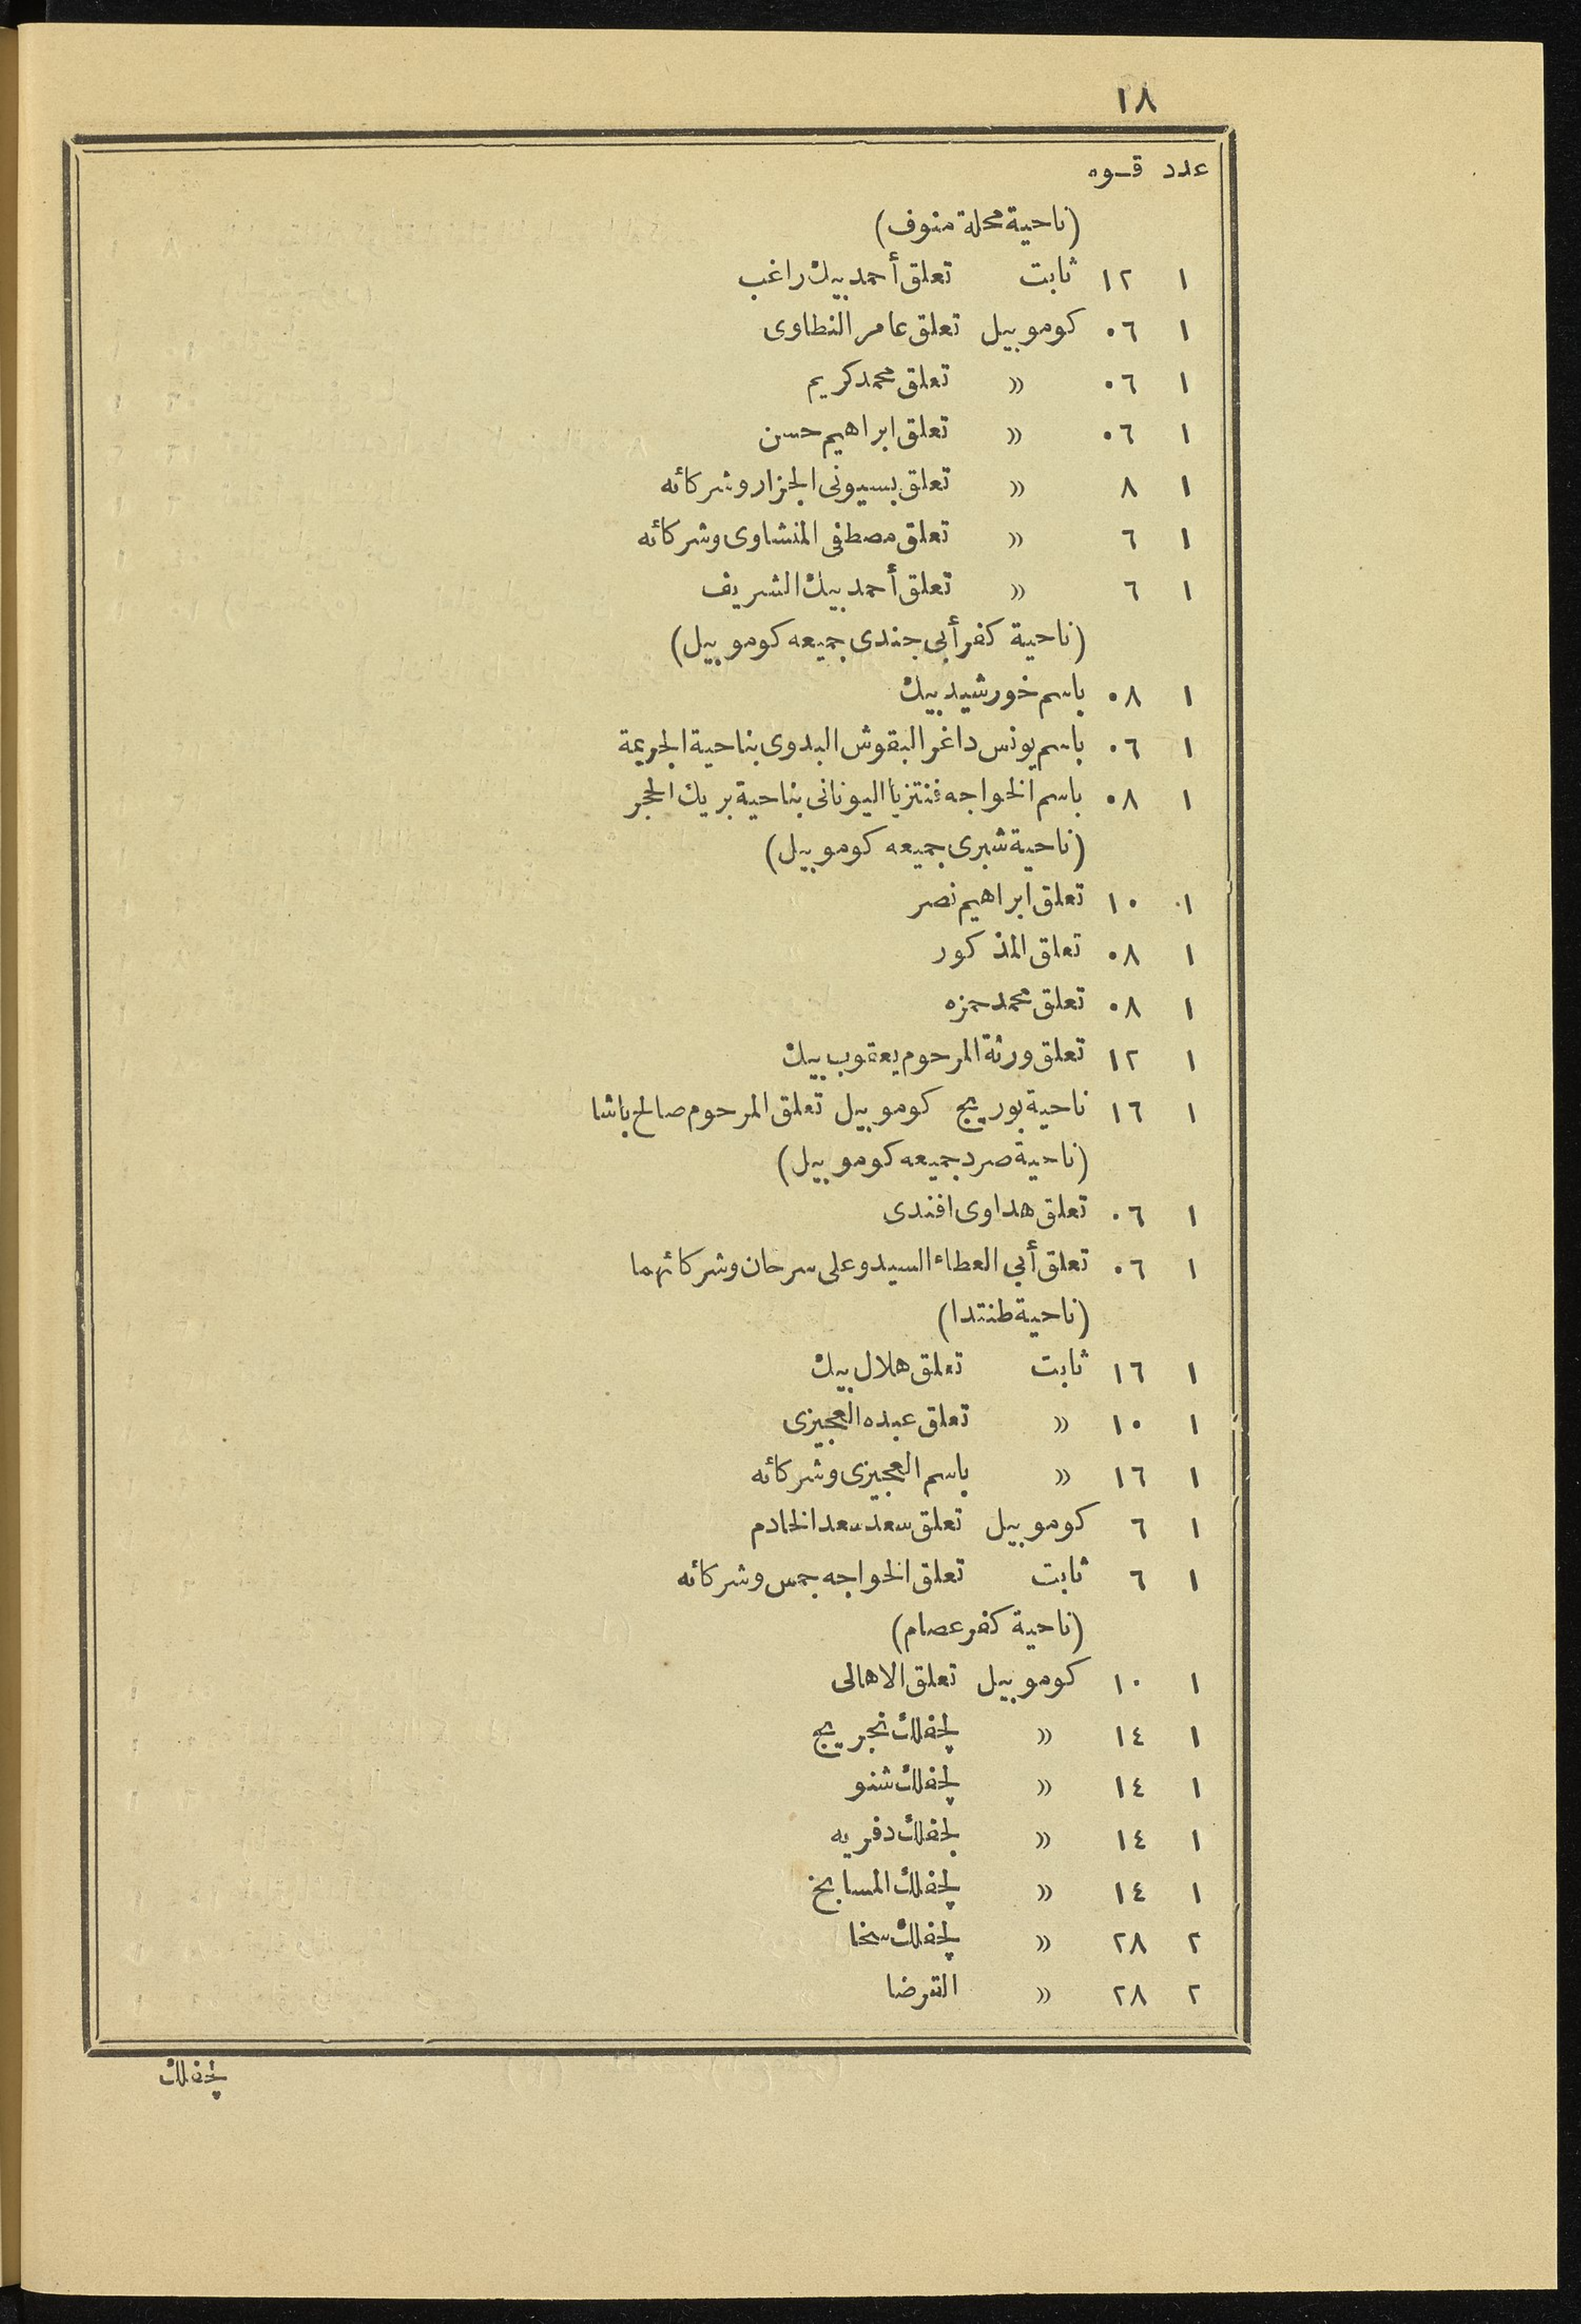 ١٨
عدد قـوه
(ناحية محلة منوف)
١ ١٢ ثابت تعلق أحمد بيك راغب
١ ٠٦ كوموبيل تعلق عامر النطاوى
١ ٠٦ » تعلق محمد كريم
١ ٠٦ » تعلق ابراهيم حسن
١ ٨ » تعلق بسيونى الجزار وشركائه
١ ٦ » تعلق مصطفى المنشاوى وشركائه
١ ٦ » تعلق أحمد بيك الشريف
(ناحية كفر أبى جندى جميعه كوموبيل)
١ ٠٨ باسم خورشيد بيك
١ ٠٦ باسم يونس داغر البقوش البدوى بناحية الجريمة
١ ٠٨ باسم الخواجه فنتزيا اليونانى بناحية بريك الحجر
(ناحية شبرى جميعه كوموبيل)
١ ١٠ تعلق ابراهيم نصر
١ ٠٨ تعلق المذكور
١ ٠٨ تعلق محمد حمزه
١ ١٢ تعلق ورثة المرحوم يعقوب بيك
١ ١٦ ناحية بوريج كوموبيل تعلق المرحوم صالح باشا
(ناحية صرد جميعه كوموبيل)
١ ٠٦ تعلق هداوى افندى
١ ٠٦ تعلق أبى العطاء السيد وعلى سرحان وشركائهما
(ناحية طنتدا)
١ ١٦ ثابت تعلق هلال بيك
١ ١٠ » تعلق عبده العجيزى
١ ١٦ » باسم العجيزى وشركائه
١ ٦ كوموبيل تعلق سعد سعد الخادم
١ ٦ ثابت تعلق الخواجه جمس وشركائه
(ناحية كفر عصام)
١ ١٠ كوموبيل تعلق الاهالى
١ ١٤ » بجفلك نجريج
١ ١٤ » بجفلك شنو
١ ١٤ » بجفلك دفريه
١ ١٤ » بجفلك المسابخ
٢ ٢٨ » بجفلك سخا
٢ ٢٨ » القرضا
بجفلك